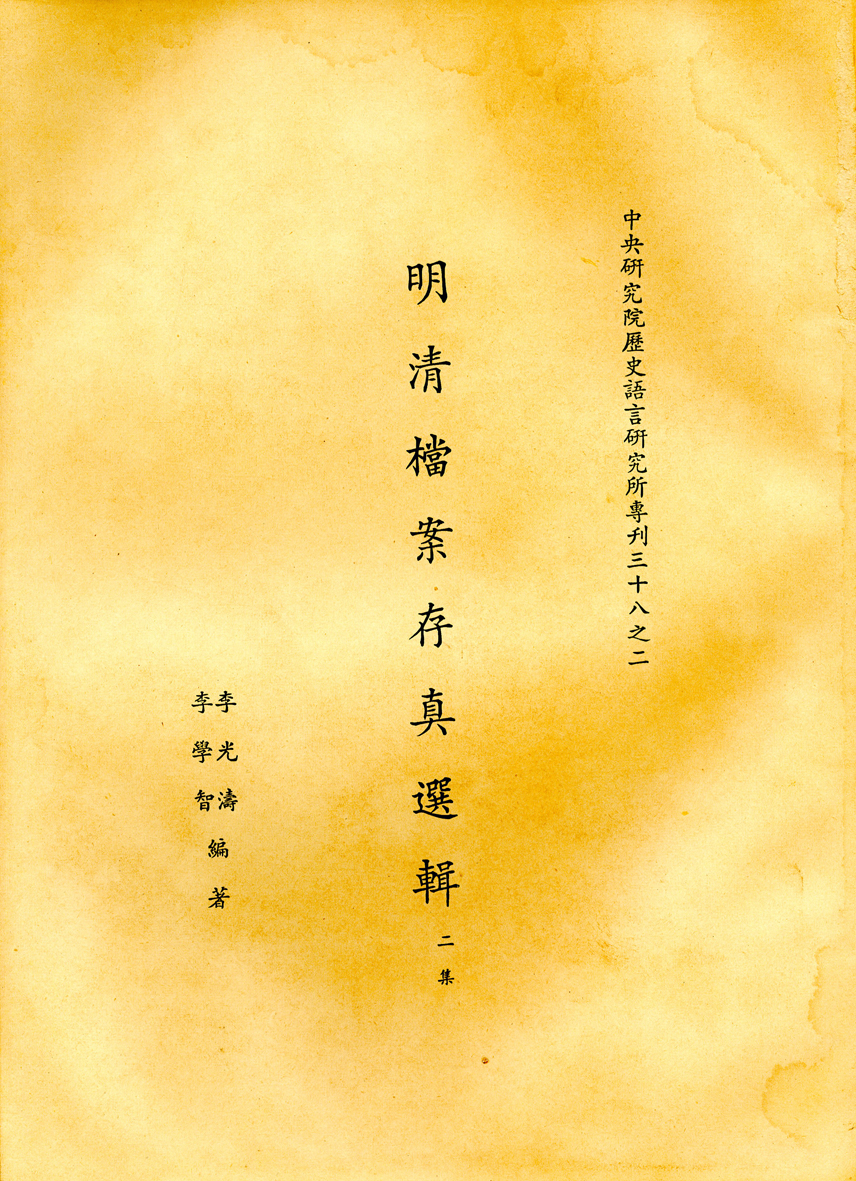 中央研究院歷史語言研究所專刊三十八之二
明清檔案存真選輯
二集
李光濤
李學智
編著